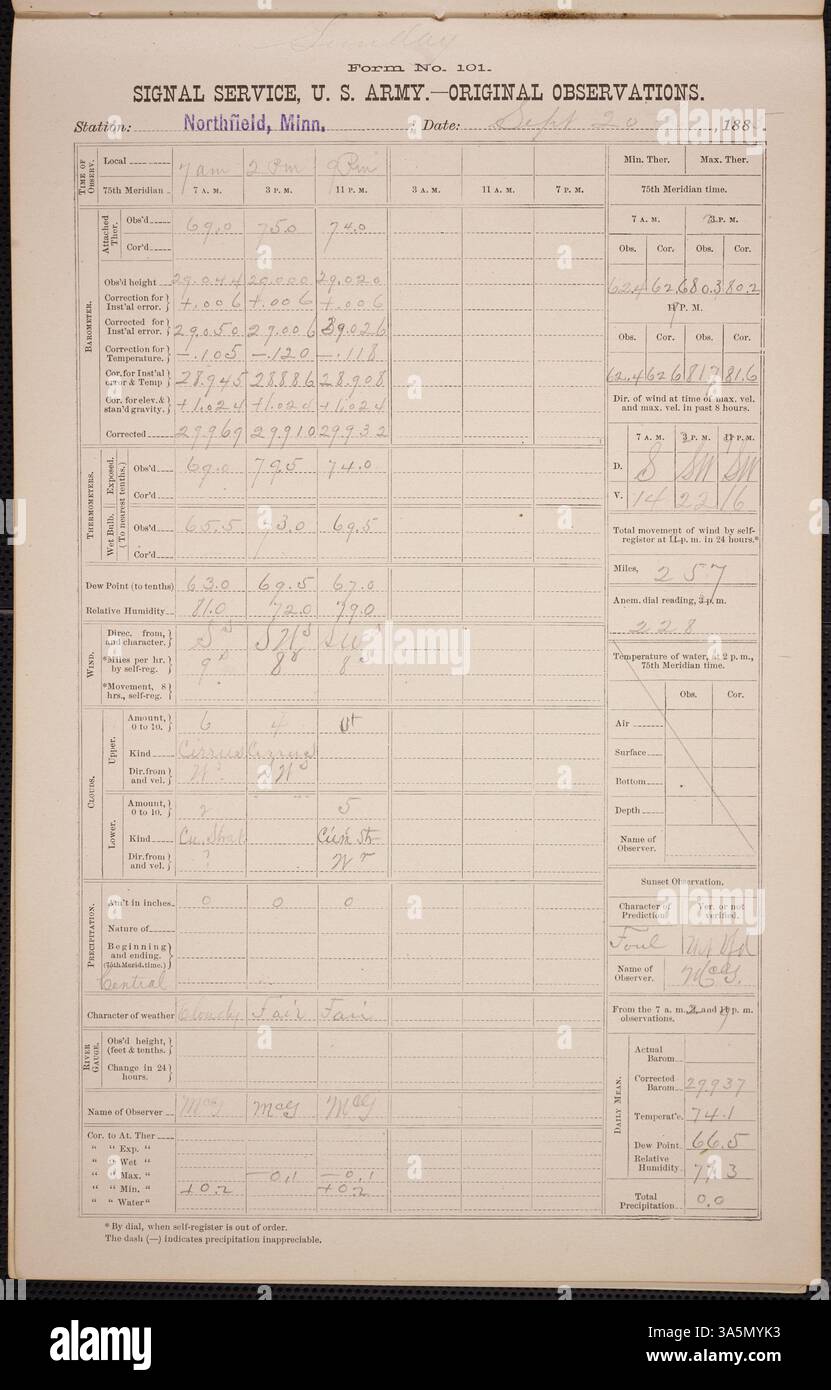 Sunday
Form No. 101.
SIGNAL SERVICE, U. S. ARMY.—ORIGINAL OBSERVATIONS.
Station: Northfield, Minn. ; Date: Sept 20, 1885.
TIME OF OBSERV.
Local 7 am 2 Pm 9 Pm
75th Meridian 7 A. M. 3 P. M. 11 P. M. 3 A. M. 11 A. M. 7 P. M.
BAROMETER.
Attached Ther.
Obs'd 69.0 75.0 74.0
Cor'd
Obs'd height 29.044 29.000 29.020
Correction for Inst'al error. +.006 +.006 +.006
Corrected for Inst'al error. 29.050 29.006 29.026
Correction for Temperature. —.105 —.120 —.118
Cor. for Inst'al error & Temp 28.945 28.886 28.908
Cor. for elev. & stan'd gravity. +1.024 +1.024 +1.024
Corrected 29.969 29.910 29.932
THERMOMETERS.
Exposed.
(To nearest tenths.)
Obs'd 69.0 79.5 74.0
Cor'd
Wet Bulb.
Obs'd 65.5 73.0 69.5
Cor'd
Dew Point (to tenths) 63.0 69.5 67.0
Relative Humidity 81.0 72.0 79.0
WIND.
Direc. from, and character.
*Miles per hr. by self-reg. 9 8 8
*Movement, 8 hrs., self-reg.
CLOUDS.
Upper.
Amount, 0 to 10. 6 4 0
Kind Cirrus Cirrus
Dir. from and vel. W W
Lower.
Amount, 0 to 10. 2 5
Kind Cu. Strat Cum St
Dir. from and vel. ? W
PRECIPITATION.
Am't in inches 0 0 0
Nature of
Beginning and ending.
(75th Merid. time.)
Central
Character of weather Cloudy Fair Fair
RIVER GAUGE.
Obs'd height, (feet & tenths.
Change in 24 hours.
Name of Observer McG McG McG
Cor. to At. Ther
" " Exp. "
" " Wet "
" " Max. " —0.1 —0.1
" " Min. " +0.2 +0.2
" " Water "
* By dial, when self-register is out of order.
The dash (—) indicates precipitation inappreciable.
Min. Ther. Max. Ther.
75th Meridian time.
7 A. M. 3 P. M.
Obs. Cor. Obs. Cor.
62.4 62.6 80.3 80.2
11 P. M.
Obs. Cor. Obs. Cor.
62.4 62.6 81.7 81.6
Dir. of wind at time of max. vel. and max. vel. in past 8 hours.
7 A. M. 3 P. M. 11 P. M.
D. S SW SW
V. 14 22 16
Total movement of wind by self-register at 11 p. m. in 24 hours.*
Miles, 257
Anem. dial reading, 3 p. m.
228
Temperature of water, at 2 p. m., 75th Meridian time.
Obs. Cor.
Air
Surface
Bottom
Depth
Name of Observer.
Sunset Observation.
Character of Prediction Ver. or not verified.
Foul Not Vfd
Name of Observer. McG.
From the 7 a. m. 3, and 11 p. m. observations.
DAILY MEAN.
Actual Barom
Corrected Barom. 29.937
Temperat'e. 74.1
Dew Point. 66.5
Relative Humidity. 77.3
Total Precipitation. 0.0
alamy
Image ID: 3A5MYK3
www.alamy.com